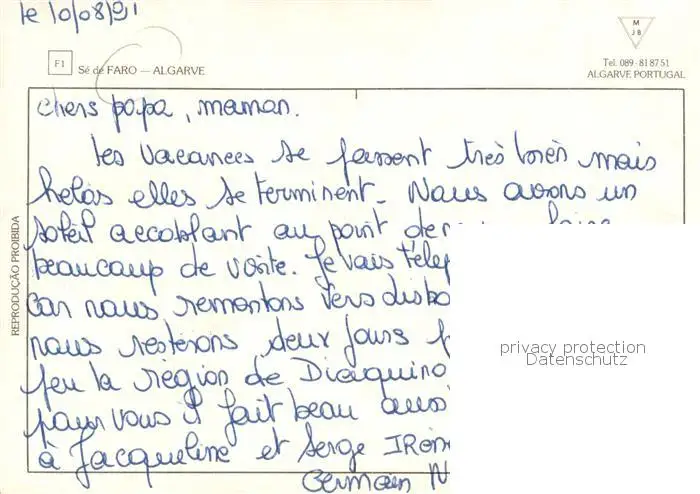 le 10/08/91
M
JB
F1 Sé de FARO — ALGARVE
Tel. 089 - 818751
ALGARVE PORTUGAL
REPRODUÇÃO PROIBIDA
chers papa, maman.
les vacances se passent très bien mais
helas elles se terminent. Nous avons un
soleil accablant au point de
beaucoup de visite. Je vais
Car nous remontons vers
nous resterons deux jours
peu la région de
pour vous il fait beau aussi
à Jacqueline et Serge
Germain N
privacy protection
Datenschutz